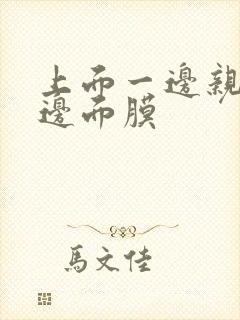 上而一邊親
邊而膜
馬文佳